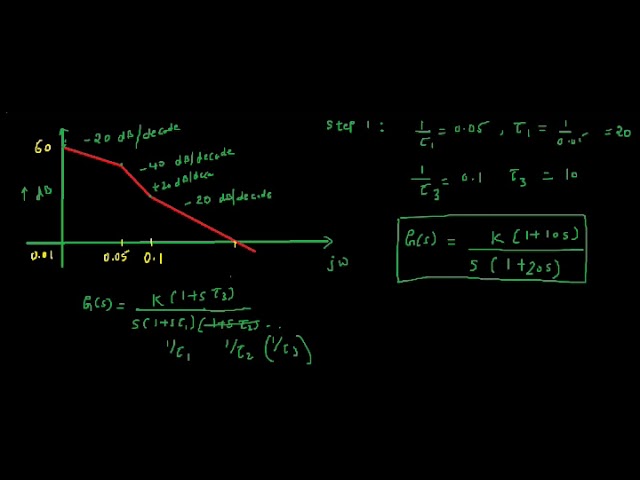 60
-20 dB/decade
-40 dB/decade
+20 dB/deca
-20 dB/decade
↑ dB
0.01
0.05
0.1
jω
G(s) = K(1+sτ3) / s(1+sτ1)(1+sτ2)..
1/τ1 1/τ2 (1/τ3)
Step 1: 1/τ1 = 0.05, τ1 = 1/0.05 = 20
1/τ3 = 0.1 τ3 = 10
G(s) = K(1+10s) / s(1+20s)